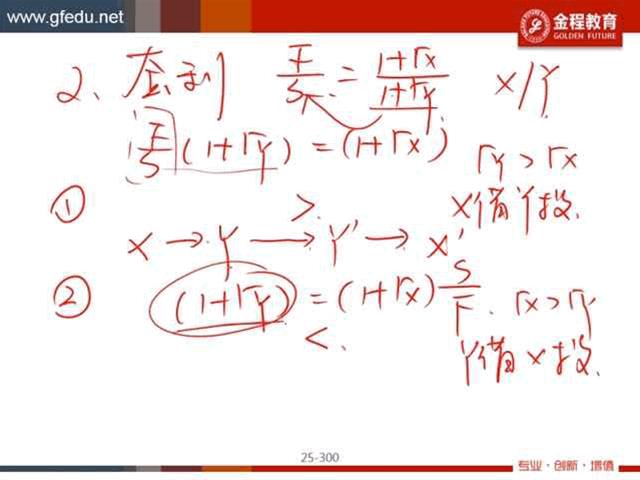 www.gfedu.net
金程教育
GOLDEN FUTURE
2、套利 F/S = (1+rx)/(1+ry) X/Y
F/S (1+ry) = (1+rx) ry > rx
① > X借Y投
X → Y → Y' → X'
② (1+ry) = (1+rx) S/F . rx > ry
< . Y借X投
25-300
专业·创新·增值